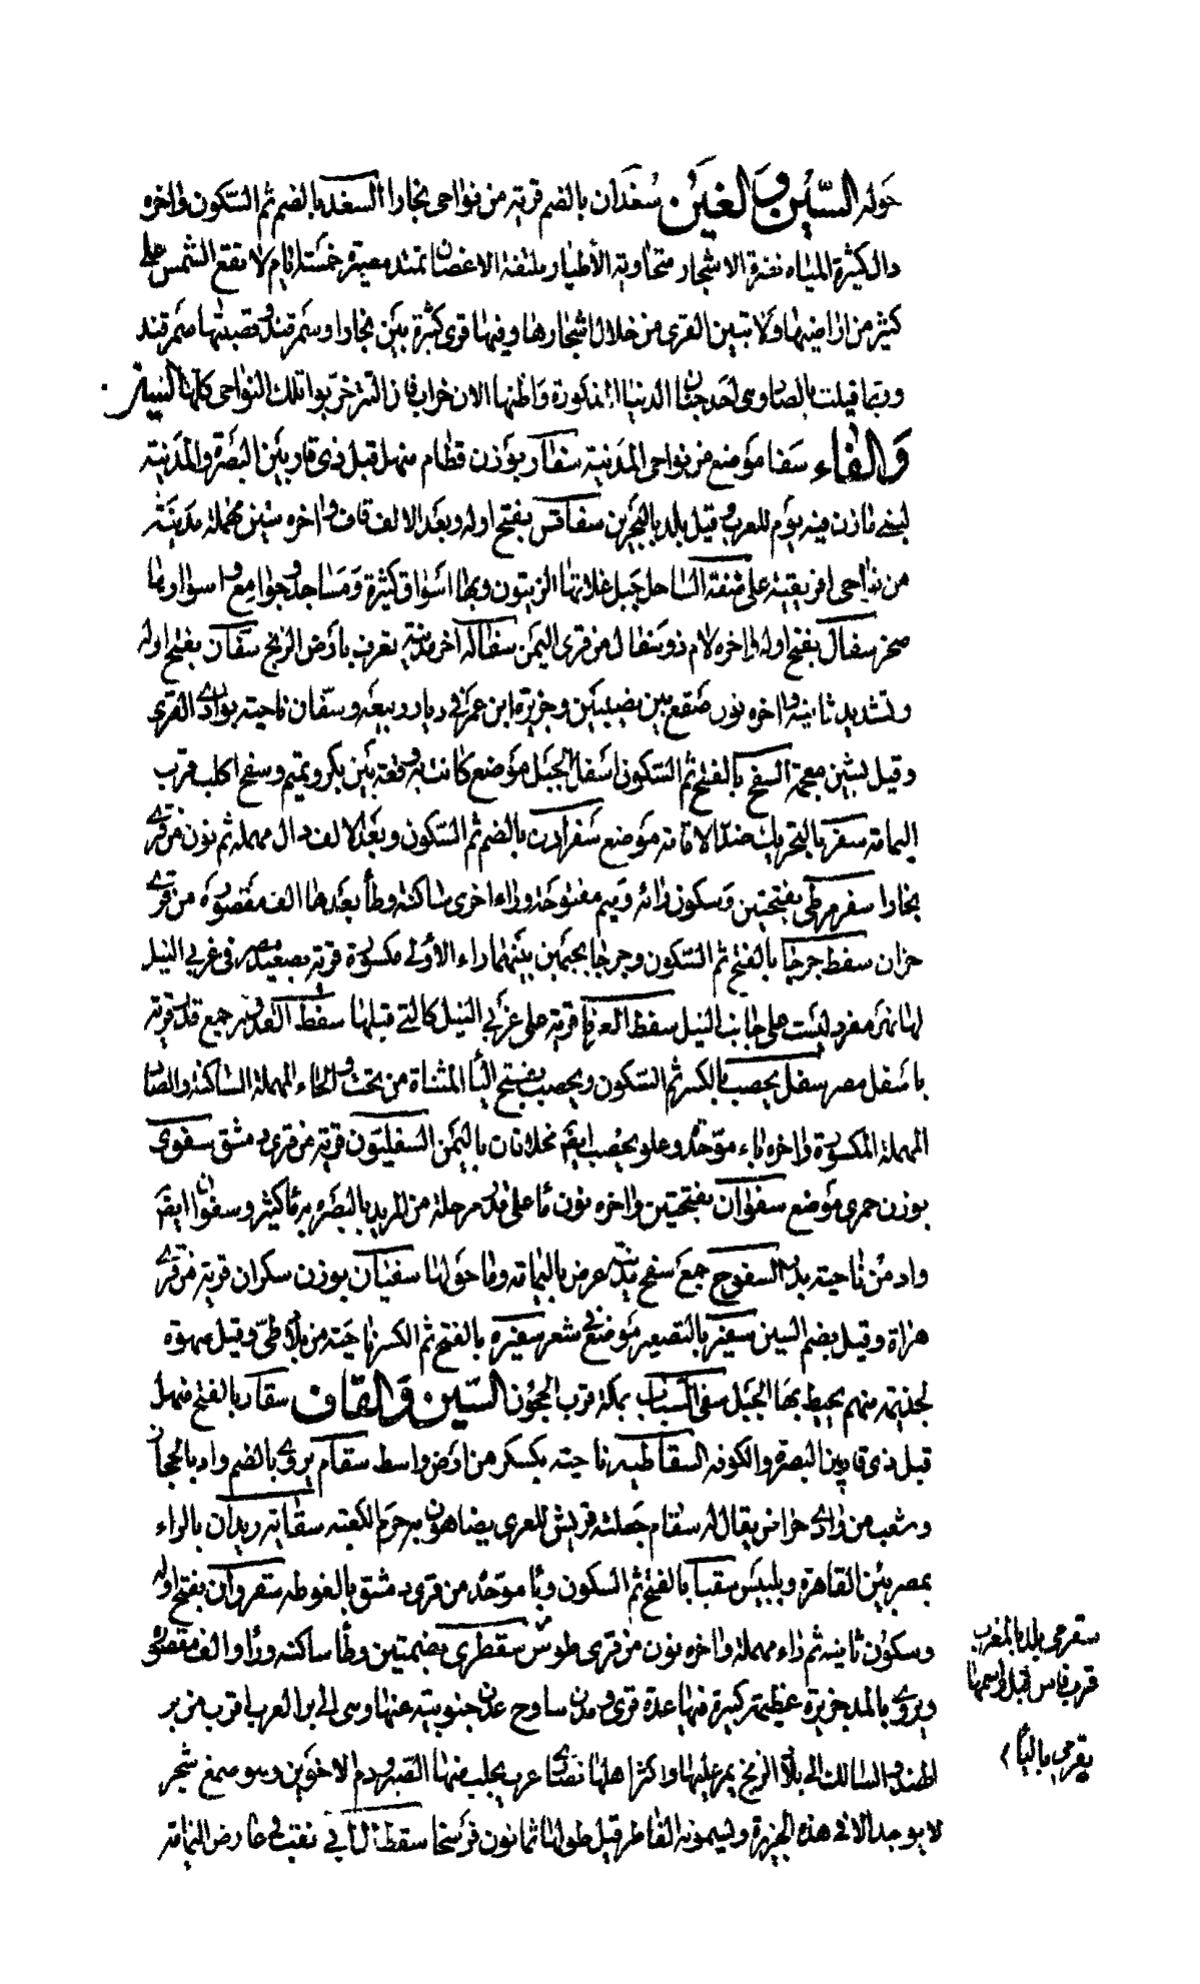 حوله السين والغين سغدان بالضم قرية من نواحى بخارا السغد بالضم ثم السكون واخره
دال كثيرة المياه نضرة الاشجار متجاوبة الاطيار ملتفة الاغصان تمتد مسيرة خمسة ايام لا تقع الشمس على
كثير من اراضيها ولا تبين القرى من خلال اشجارها وفيها قرى كثيرة بين بخارا وسمرقند وقصبتها سمرقند
وربما قيلت بالصاد وهى احد جنان الدنيا المذكورة واظنها الان خراب فان التتر خربوا تلك النواحى كلها السين
والفاء سفا موضع من نواحى المدينة سفار بوزن قطام منهل قبل ذى قار بين البصرة والمدينة
لبنى مازن فيه يوم للعرب وقيل بلد بالبحرين سفاقس بفتح اوله وبعد الالف قاف واخره سين مهملة مدينة
من نواحى افريقية على ضفة الساحل جبل غلاتها الزيتون وبها اسواق كثيرة ومساجد وجوامع واسوارها
صخر سفال بفتح اوله واخره لام ذو سفال من قرى اليمن سفاله اخر مدينة تعرف بارض الزنج سفان بفتح اوله
وتشديد ثانيه واخره نون صقع بين نصيبين وجزيرة ابن عمر فى ديار ربيعه وسفان ناحية بوادى القرى
وقيل بشين معجمة السفح بالفتح ثم السكون اسفل الجبل موضع كانت به وقعة بين بكر وتميم وسفح اكلب قرب
اليمامة سفر بالتحريك ضد الاقامة موضع سفرادن بالضم ثم السكون وبعد الالف دال مهملة ثم نون من قرى
بخارا سفرمرطى بفتحتين وسكون رائه وميم مفتوحة وراء اخرى ساكنة وطاء بعدها الف مقصورة من قرى
حران سفط جرجا بالفتح ثم السكون وجرجا بجيمين بينهما راء الاولى مكسورة قرية بصعيد مصر فى غربى النيل
لها نهر مفرد ليست على جانب النيل سفط العرفا قرية على غربى النيل كالتى قبلها سفط القدور جمع قدر قرية
باسفل مصر سفل يحصب بالكسر ثم السكون ويحصب بفتح اليا المثناة من تحت والحاء المهملة الساكنة والصاد
المهملة المكسورة واخره باء موحدة وعلو يحصب ايضا مخلافان باليمن السفليون قرية من قرى دمشق سفوى
بوزن جمزى موضع سفوان بفتحتين واخره نون ماء على قدر مرحلة من المربد بالبصرة به ماء كثير وسفوان ايضا
واد من ناحية بدر السفوح جمع سفح بلد عرض باليمامة وما حولها سفيان بوزن سكران قرية من قرى
هراة وقيل بضم السين سفير بالتصغير موضع فى شعر سفيره بالفتح ثم الكسر ناحية من بلاد طى وقيل صهوة
لجذيمة منهم يحيط بها الجبل سفى السباب بمكة قرب الحجون السين والقاف سقار بالفتح منهل
قبل ذى قار بين البصرة والكوفه السقاطيه ناحية بكسكر من ارض واسط سقام يروى بالضم واد بالحجاز
وشعب من وادى حراض يقال له سقام جعلته قريش للعزى يضاهون به حرم الكعبه سقاية ريدان بالراء
بمصر بين القاهرة وبلبيس سقبا بالفتح ثم السكون وبا موحدة من قرى دمشق بالغوطه سقروان بفتح اوله
وسكون ثانيه ثم راء مهملة واخره نون من قرى طوس سقطرى بضمتين وطا ساكنه ورا والف مقصورة
ويروى بالمد جزيرة عظيمة كبيرة فيها عدة قرى ومدن تناوح عدن جنوبية عنها وهى الى بر العرب اقرب من بر
الهند والسالك الى بلاد الزنج يمر عليها واكثر اهلها نصارى عرب يجلب منها الصبر ودم الاخوين وهو صمغ شجر
لا يوجد الا فى هذه الجزيرة ويسمونه القاطر قيل طولها ثمانون فرسخا سقطة ال ابى نقب فى عارض اليمامة
سقرمى بلد بالمغرب
قرب فاس قيل واسمها
يقرمى باليا